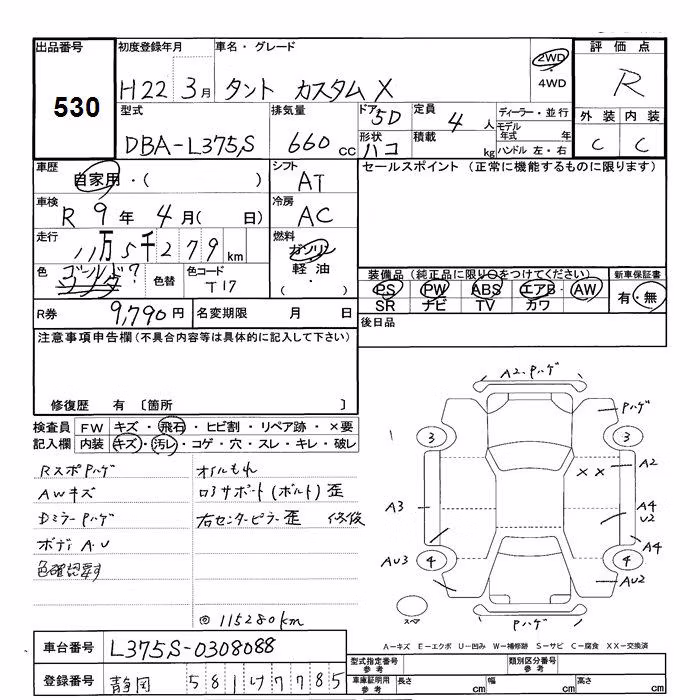 出品番号 初度登録年月 車名・グレード 評価点
530
H22 3月 タント カスタムX 2WD 4WD R
型式 排気量 ドア 5D 定員 4人 ディーラー・並行 外装 内装
DBA-L375S 660cc 形状 ハコ 積載 kg モデル年式 年 C C
ハンドル 左・右
車歴 自家用・( ) シフト AT セールスポイント (正常に機能するものに限ります)
車検 R 9年 4月( 日) 冷房 AC
走行 11万5千279km 燃料 ガソリン 軽油 ( ・ )
色 ゴールド? 色替 色コード T17
装備品(純正品に限り○をつけてください) 新車保証書
PS PW ABS エアB・AW 有・無
SR ナビ TV カワ
R券 9,790円 名変期限 月 日
後日品
注意事項申告欄(不具合内容等は具体的に記入して下さい)
修復歴 有 〔箇所 〕
検査員 FW キズ・飛石・ヒビ割・リペア跡・×要
記入欄 内装 キズ・汚レ・コゲ・穴・スレ・キレ・破レ
Rスポ Pハゲ オイルもれ
AWキズ コアサポート(ボルト)歪
Dミラー Pハゲ 右センターピラー歪 修復
ボディ A.U
色確認要す
◎115280km
A2.Pハゲ
Pハゲ
3 3
A2
××
A3 A4
U2
A4
AU3 4 4
AU2
スペア
Pハゲ
A-キズ E-エクボ U-凹み W-補修跡 S-サビ C-腐食 XX-交換済
車台番号 L375S-0308088
登録番号 静岡 581け7785
型式指定番号 参考 類別区分番号 参考
車庫証明用 参考 長さ cm 幅 cm 高さ cm